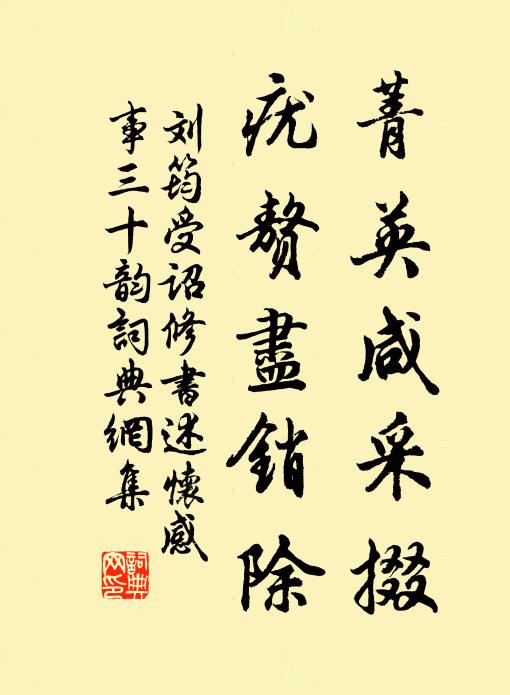 菁英咸采掇
疣赘盡銷除
刘筠受詔修書述懷感
事三十韵詞典網集
詞典網印